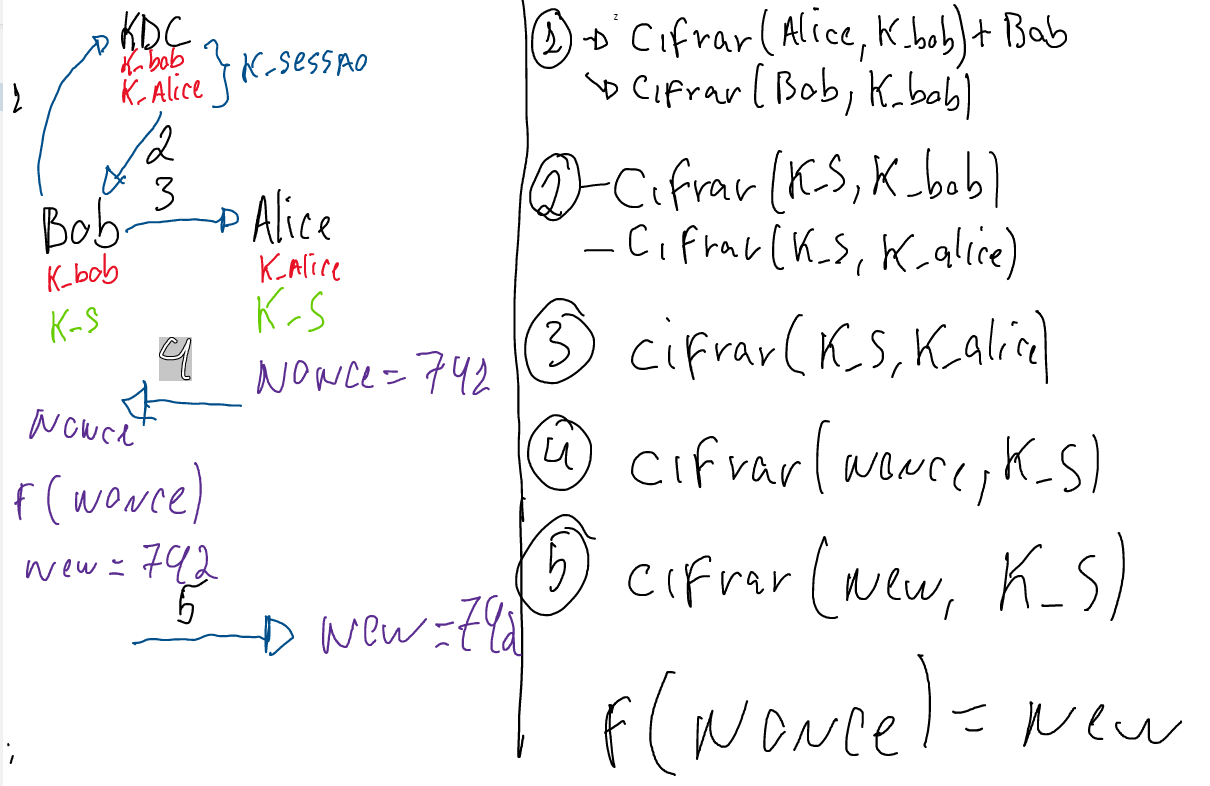 KDC
K_bob
K_Alice
K_SESSAO
1
2
3
Bob
Alice
K_bob
K_Alice
K_S
K_S
4
NONCE = 742
NONCE
F(NONCE)
New = 792
5
New = 792
1 Cifrar(Alice, K_bob) + Bob
Cifrar(Bob, K_bob)
2 - Cifrar(K_S, K_bob)
- Cifrar(K_S, K_alice)
3 Cifrar(K_S, K_alice)
4 Cifrar(NONCE, K_S)
5 Cifrar(New, K_S)
F(NONCE) = New